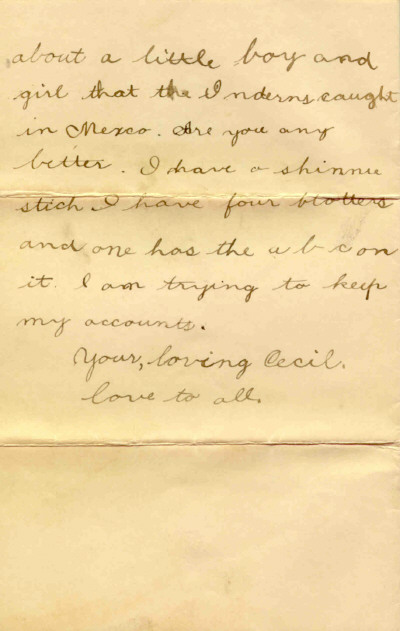 about a little boy and
girl that the Inderns caught
in Mexco. Are you any
better. I have a shinnie
stich I have four blotters
and one has the a b c on
it. I am trying to keep
my accounts.
Your, loving Cecil.
love to all.